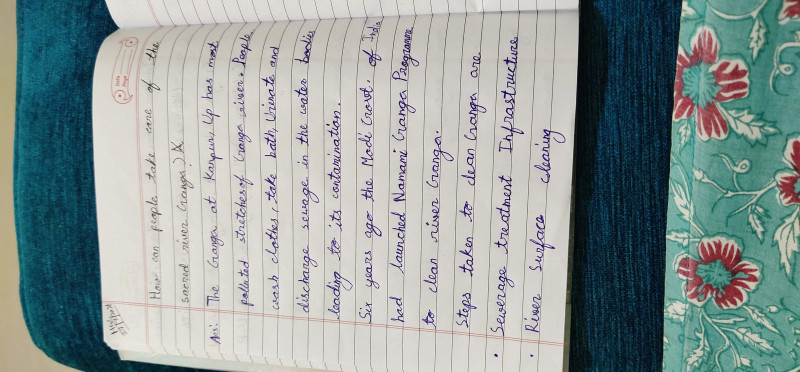 How can people take care of the
sacred river Ganga?
Ans: The Ganga at Kanpur, Up has most
polluted stretches of Ganga river. People
wash clothes, take bath, Urinate and
discharge sewage in the water bodies
leading to its contamination.
Six years ago the Modi Govt. of India
had launched Namami Ganga Programme
to clean river Ganga.
Steps taken to clean Ganga are
• Sewerage treatment Infrastructure
• River Surface cleaning